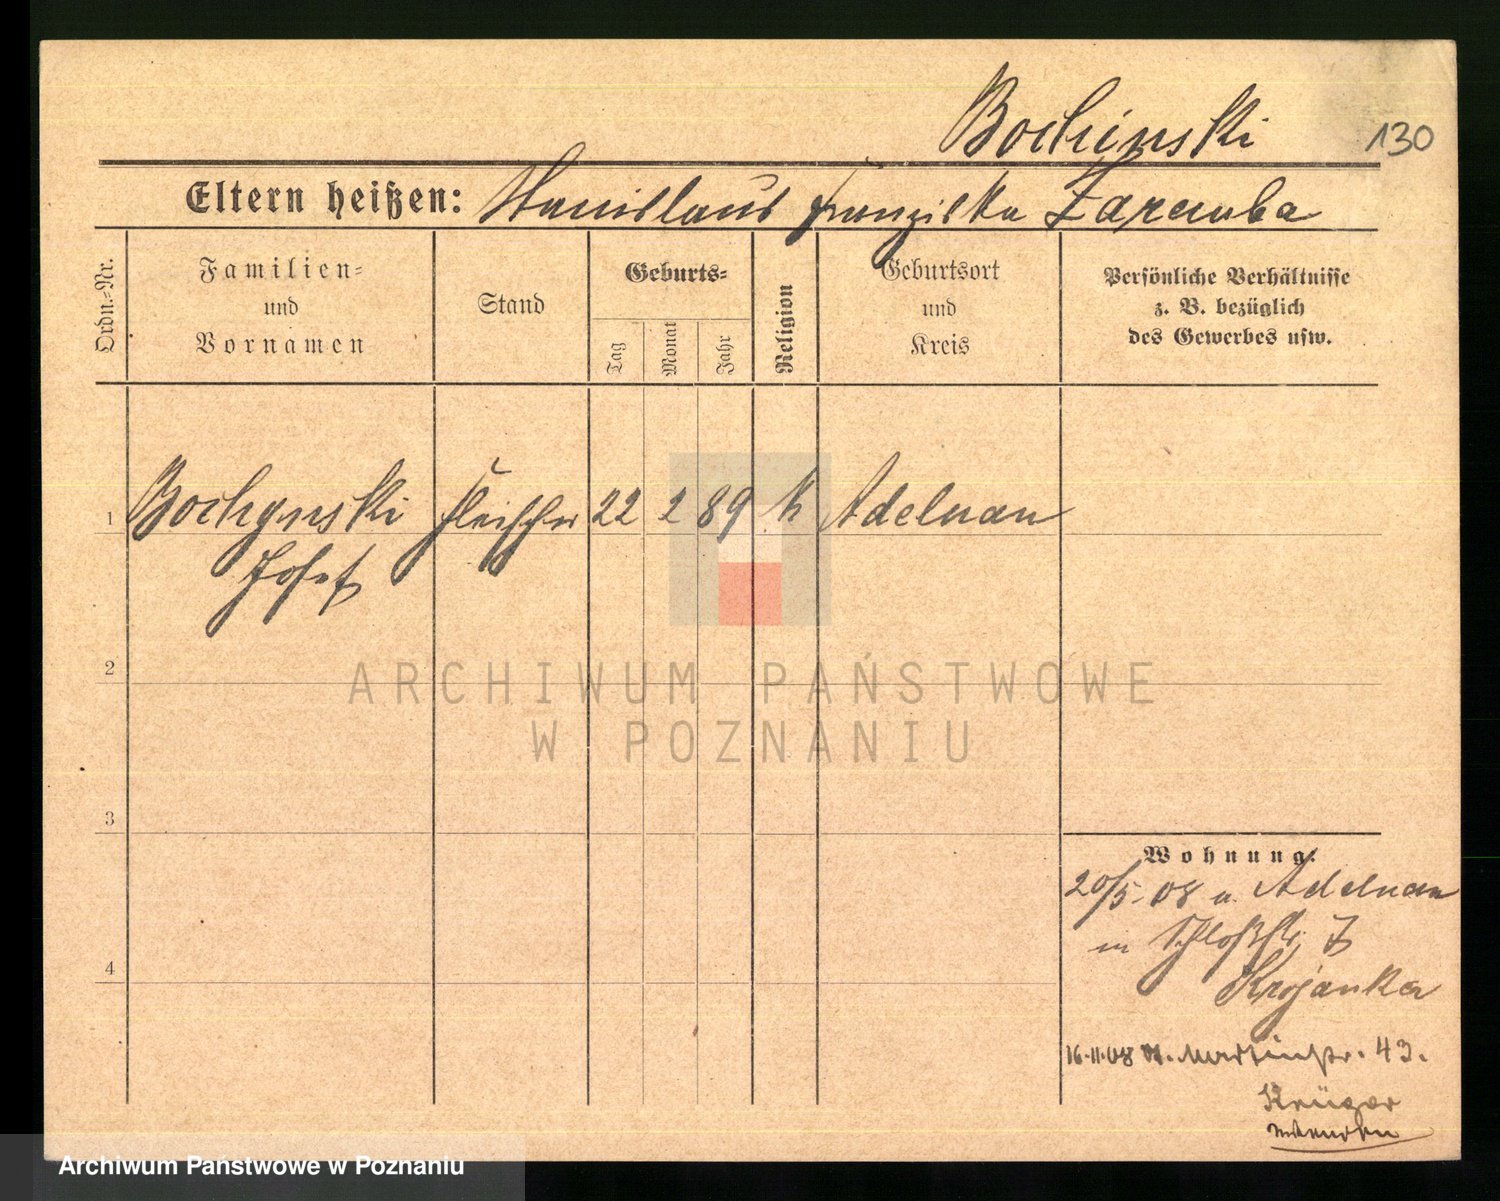 Bochinski 130
Eltern heißen: Stanislaus Franziska Zaremba
Ordn.-Nr.
Familien-
und
Vornamen
Stand
Geburts-
Tag
Monat
Jahr
Religion
Geburtsort
und
Kreis
Persönliche Verhältnisse
z. B. bezüglich
des Gewerbes usw.
1 Bochynski Fleischer 22 2 89 k Adelnau
Josef
2
ARCHIWUM PAŃSTWOWE
W POZNANIU
3
Wohnung:
20/5.08 v. Adelnau
in Schloßstr. 7
Krojanka
16.11.08 Martinstr. 43.
Krüger
4
Archiwum Państwowe w Poznaniu